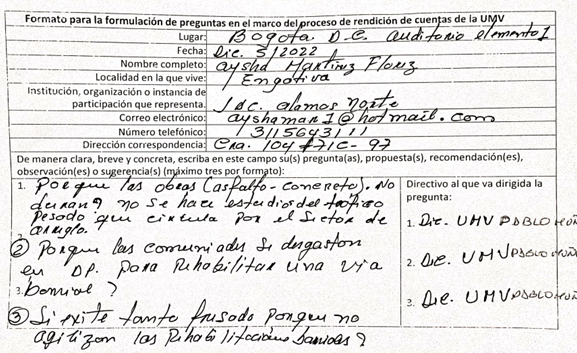 Formato para la formulación de preguntas en el marco del proceso de rendición de cuentas de la UMV
Lugar: Bogota D.C. auditorio elemento 1
Fecha: Dic. 5/2022
Nombre completo: aysha Martinez Florez
Localidad en la que vive: Engativa
Institución, organización o instancia de participación que representa: JAC. alamos norte
Correo electrónico: ayshaman1@hotmail.com
Número telefónico: 3115643111
Dirección correspondencia: Cra. 104 #71C-97
De manera clara, breve y concreta, escriba en este campo su(s) pregunta(as), propuesta(s), recomendación(es),
observación(es) o sugerencia(s) (máximo tres por formato):
Directivo al que va dirigida la
pregunta:
1. Porque las obras (asfalto-concreto). No
duran? no se hace estudios del trafico
pesado que circula por el sector de
arreglo.
2. Porque las comunidades se desgastan
en DP. para Rehabilitar una via
3. barrial?
3 Si exite tanto fresado porque no
agilizan las Rehabilitaciones barriales?
1. Dir. UMV PABLO MUÑ
2. Dir. UMV PABLO MUÑ
3. Dir. UMV PABLO MUÑ